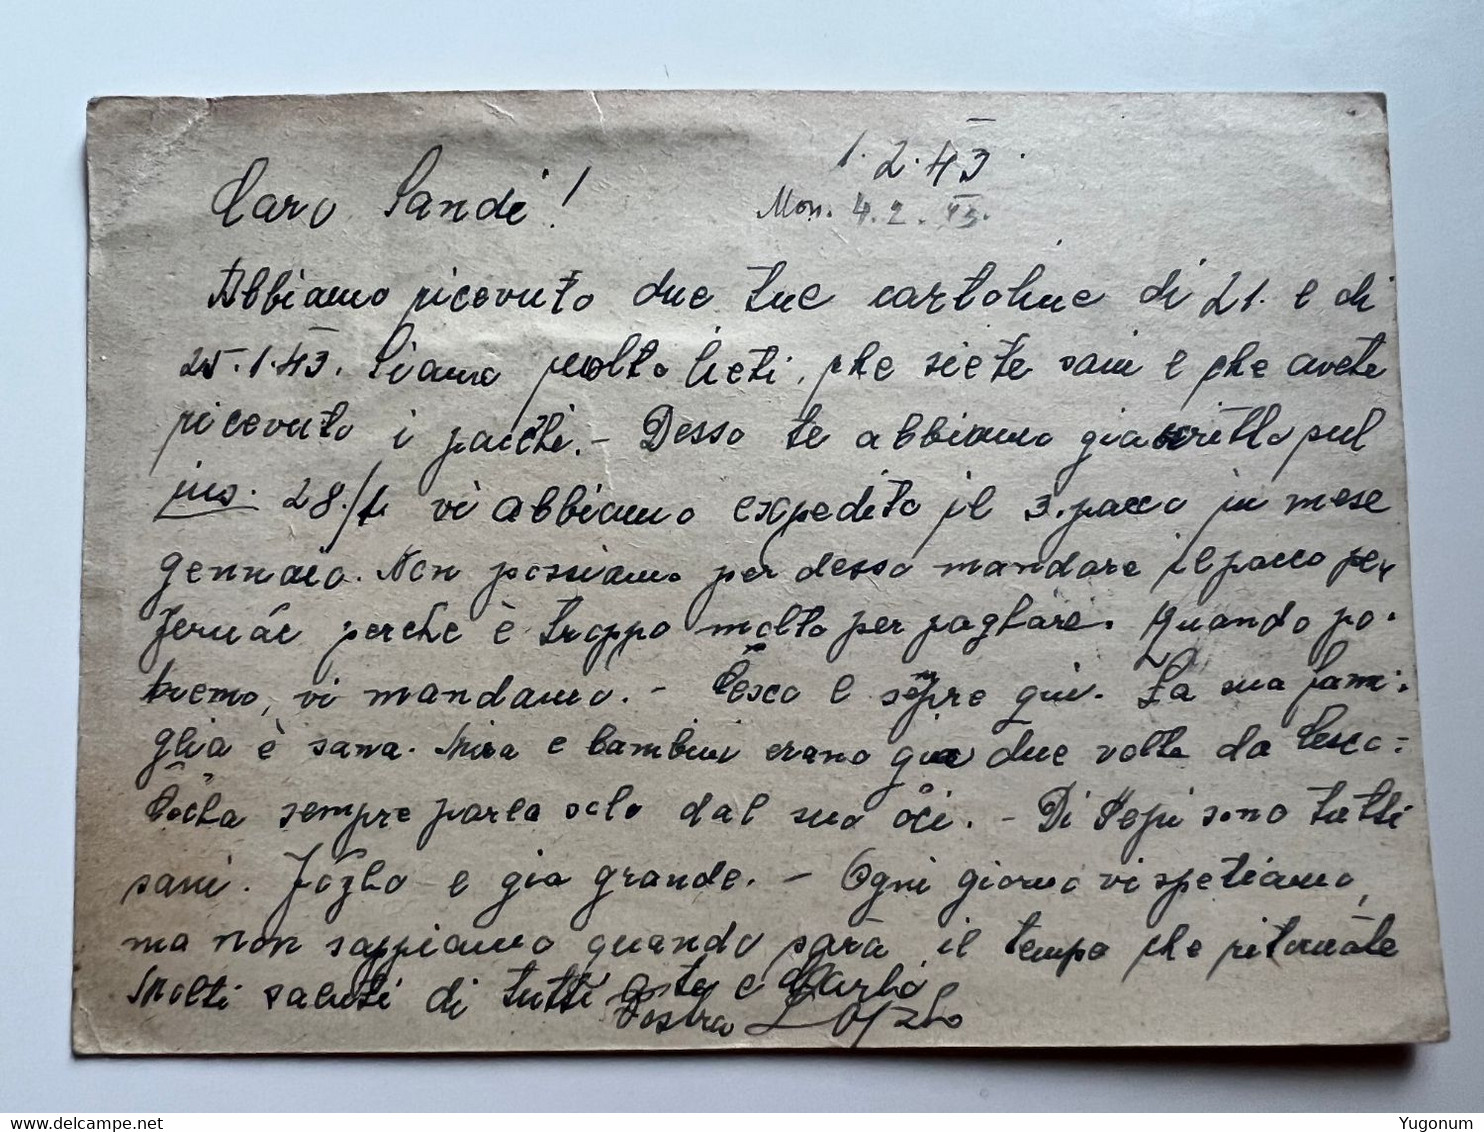 1.2.43.
Caro Sandi!
Mon. 4.2.43.
Abbiamo ricevuto due tue cartoline di 21. e di
25.1.43. Siamo molto lieti, che siete sani e che avete
ricevuto i pacchi. - Desso te abbiamo gia scritto sul
28./1. vi abbiamo expedito il 3. pacco in mese
gennaio. Non possiamo per desso mandare il pacco per
perche è troppo molto per pagliare. Quando po-
tremo, vi mandamo. - Cesco e sempre qui. La sua fami-
glia è sana. Mira e bambini erano gia due volte da Cesco-
sempre parla solo dal suo oči. - Di Pepi sono tutti
sani. e gia grande. - Ogni giorno vi spetiamo,
ma non sappiamo quando sarà il tempo che ritornate
Molti saluti di tutti e
Vostra
www.delcampe.net
Yugonum